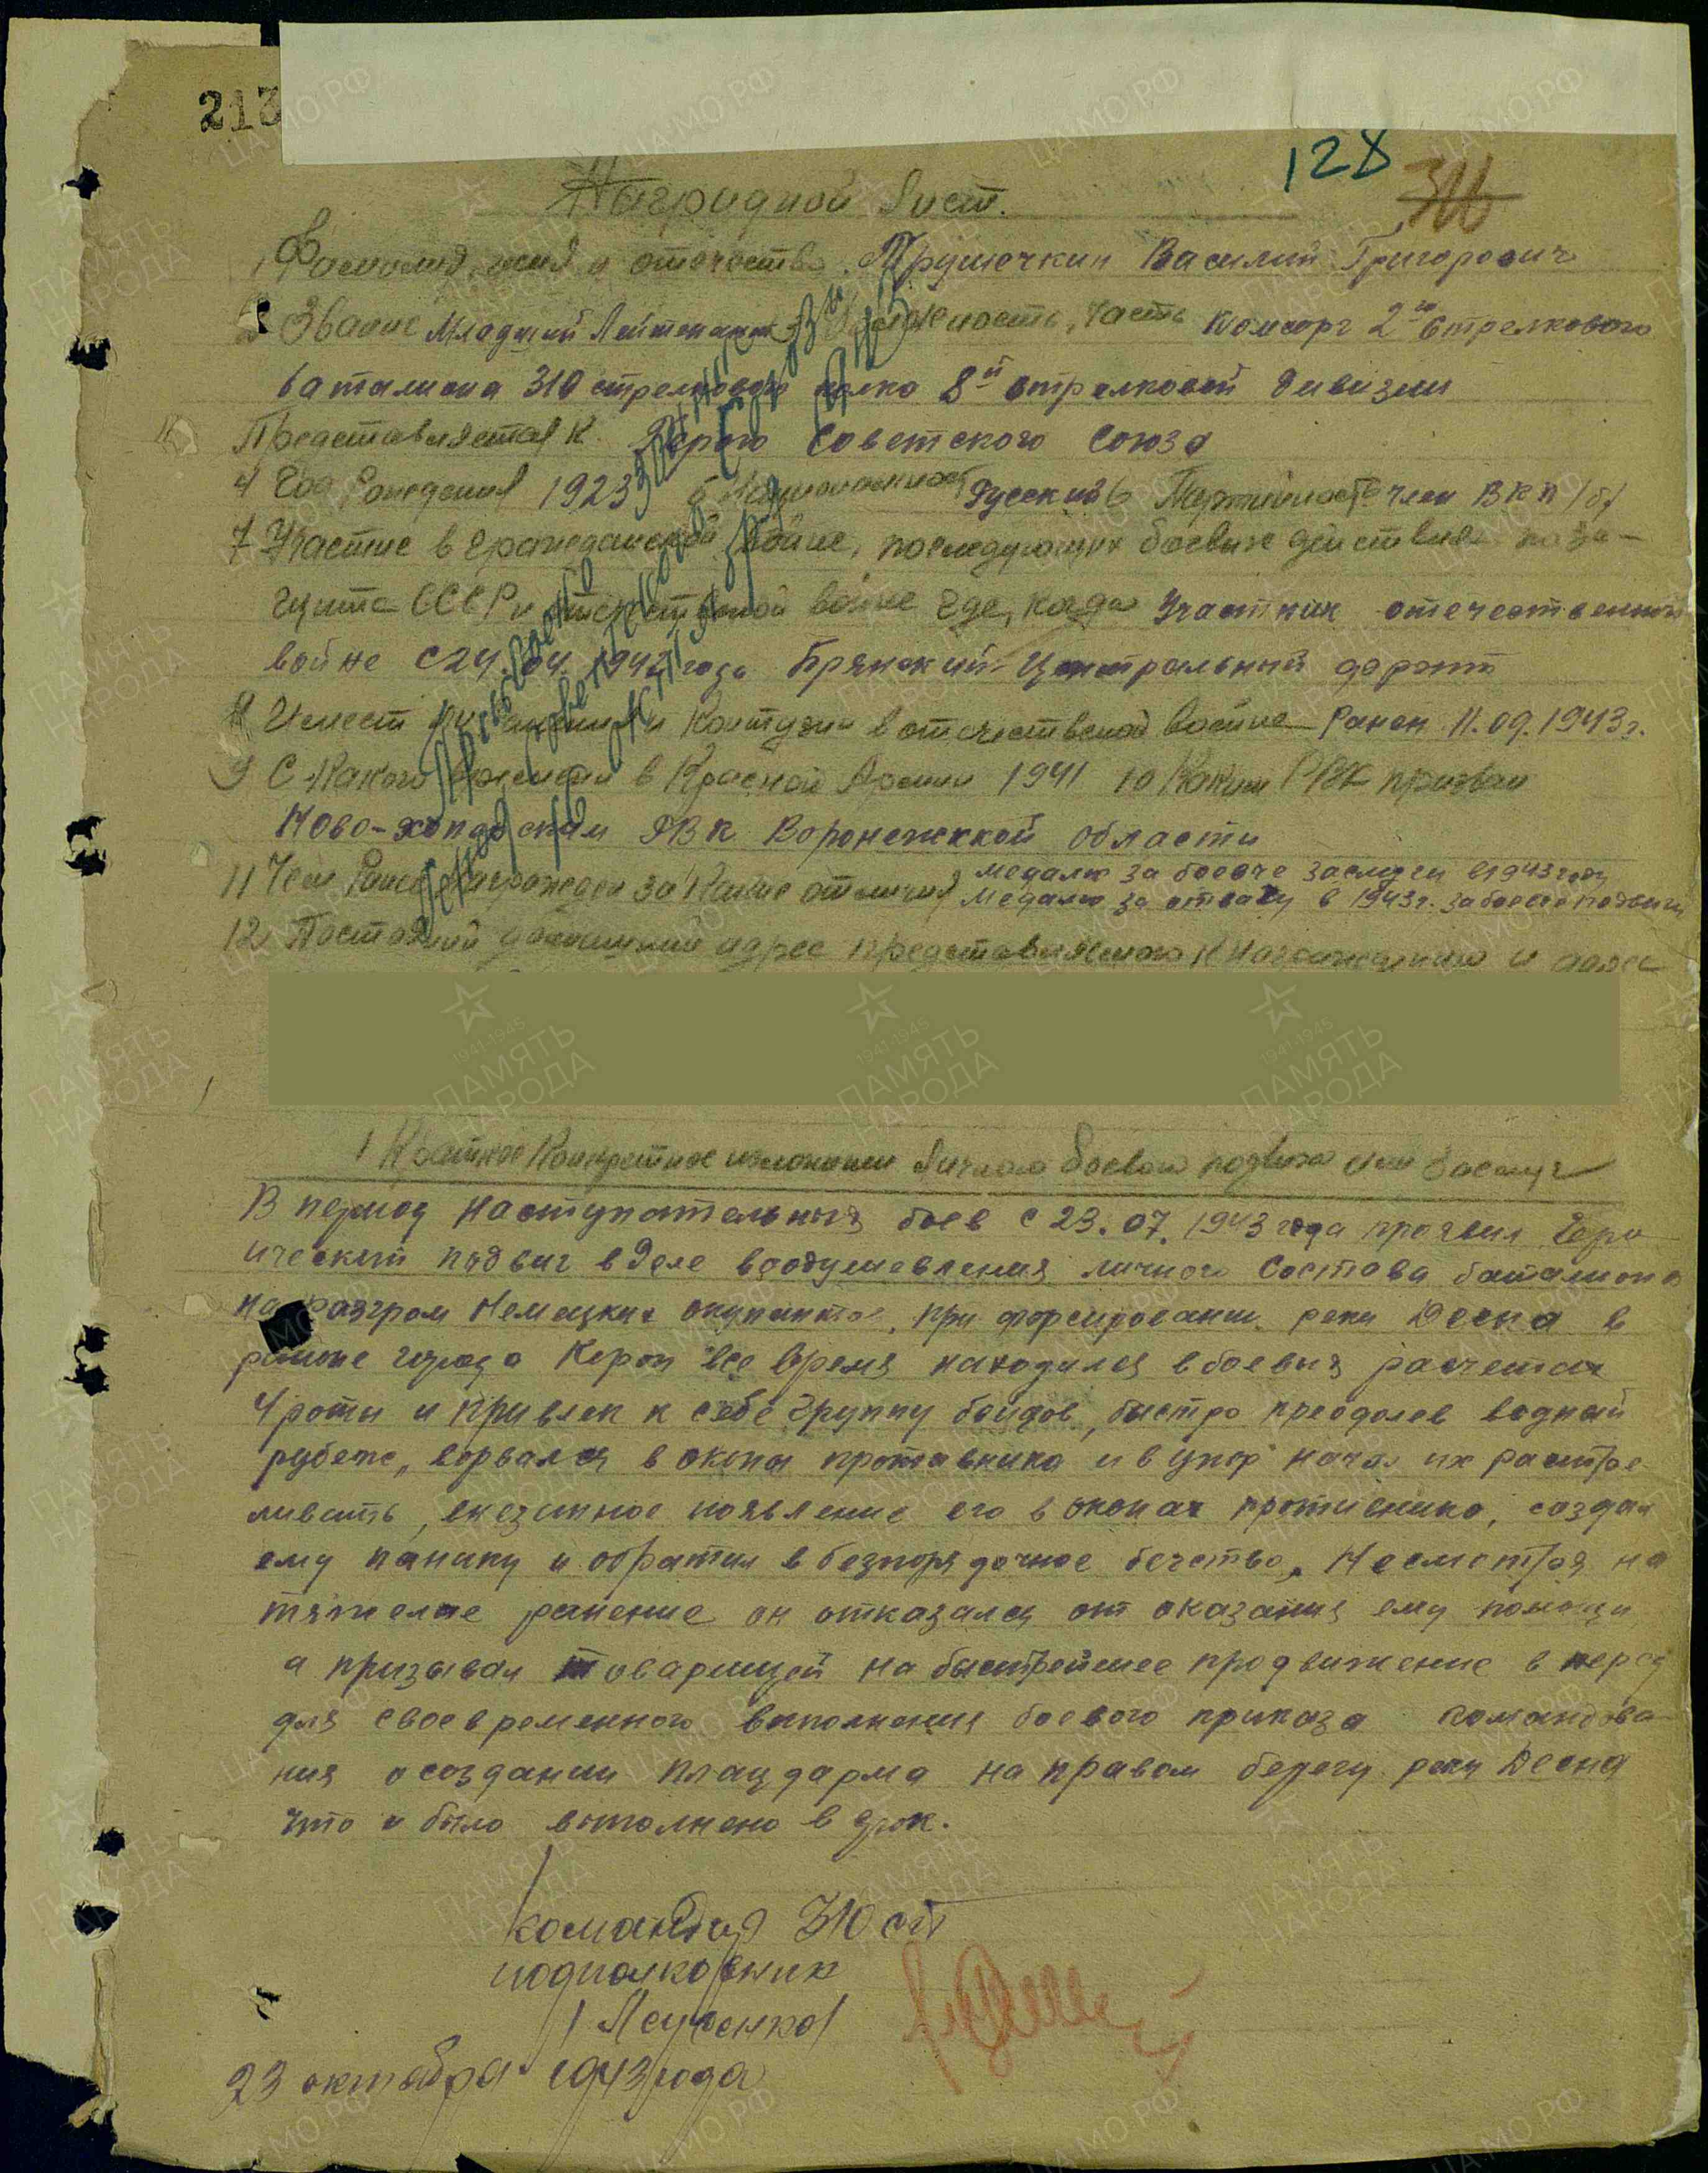 213
128
Наградной Лист.
1 Фамилия, имя и отчество Трушечкин Василий Григорович
2 Звание Младший Лейтенант 3 Должность, часть Комсорг 2го Стрелкового
баталиона 310 стрелкового полка 8й стрелковой дивизии
Представляется к Герою Советского Союза
4 Год Рождения 1923 5 Национальност Русский 6 Партийность член ВКП/б/
7 Участие в гражданской войне, последующих боевых действиях по за-
щите СССР и отечественной войне где, когда Участник отечественной
войне с 24.04.1942 года Брянский - Центральный фронт
8 Имеет ли ранения и контузии в отечественой войне Ранен 11.09.1943г.
9 С Какого времени в Красной Армии 1941 10 Каким РВК призван
Ново-хоперским РВК Воронежккой области
11 Чем Ранее награжден за какие отличия медалю за боевые заслуги в 1943 году
медалю за отвагу в 1943г. за боевые подвиги
12 Постоянный домашний адрес представляемого к награждению и адрес
Присвоено звание Героя
Советского Союза
1 Краткое Конкретное изложение Личного боевого подвига или Заслуг
В период наступательных боев с 23.07.1943 года проявил Геро
ический подвиг в деле воодушевления личного Состава баталиона
на разгром Немецких окупантов, при форсировании реки Десна в
районе города Кероп все время находился в боевых расчетах
4 роты и привлек к себе группу бойцов, быстро преодолев водный
рубеж, ворвался в окопы противника и в упор начал их растре
ливать, внезапное появление его в окопах противника, создал
ему панику и обратил в безпорядочное бегство. Несмотря на
тяжелое ранение он отказался от оказания ему помощи
а призывал товарищей на быстрейшее продвижение в перед
для своевременного выполнения боевого приказа командова-
ния о создании плацдарма на правом берегу реки Десна
что и было выполнено в срок.
Командир 310 сп
подполковник
/ Леубенко/
23 октября 1943 года